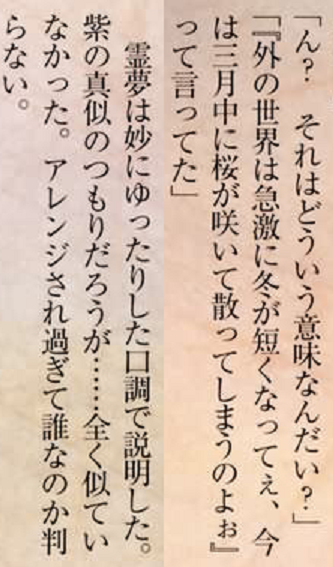 「ん？　それはどういう意味なんだい？」
「『外の世界は急激に冬が短くなってぇ、今
は三月中に桜が咲いて散ってしまうのよぉ』
って言ってた」
　霊夢は妙にゆったりした口調で説明した。
紫の真似のつもりだろうが……全く似てい
なかった。アレンジされ過ぎて誰なのか判
らない。